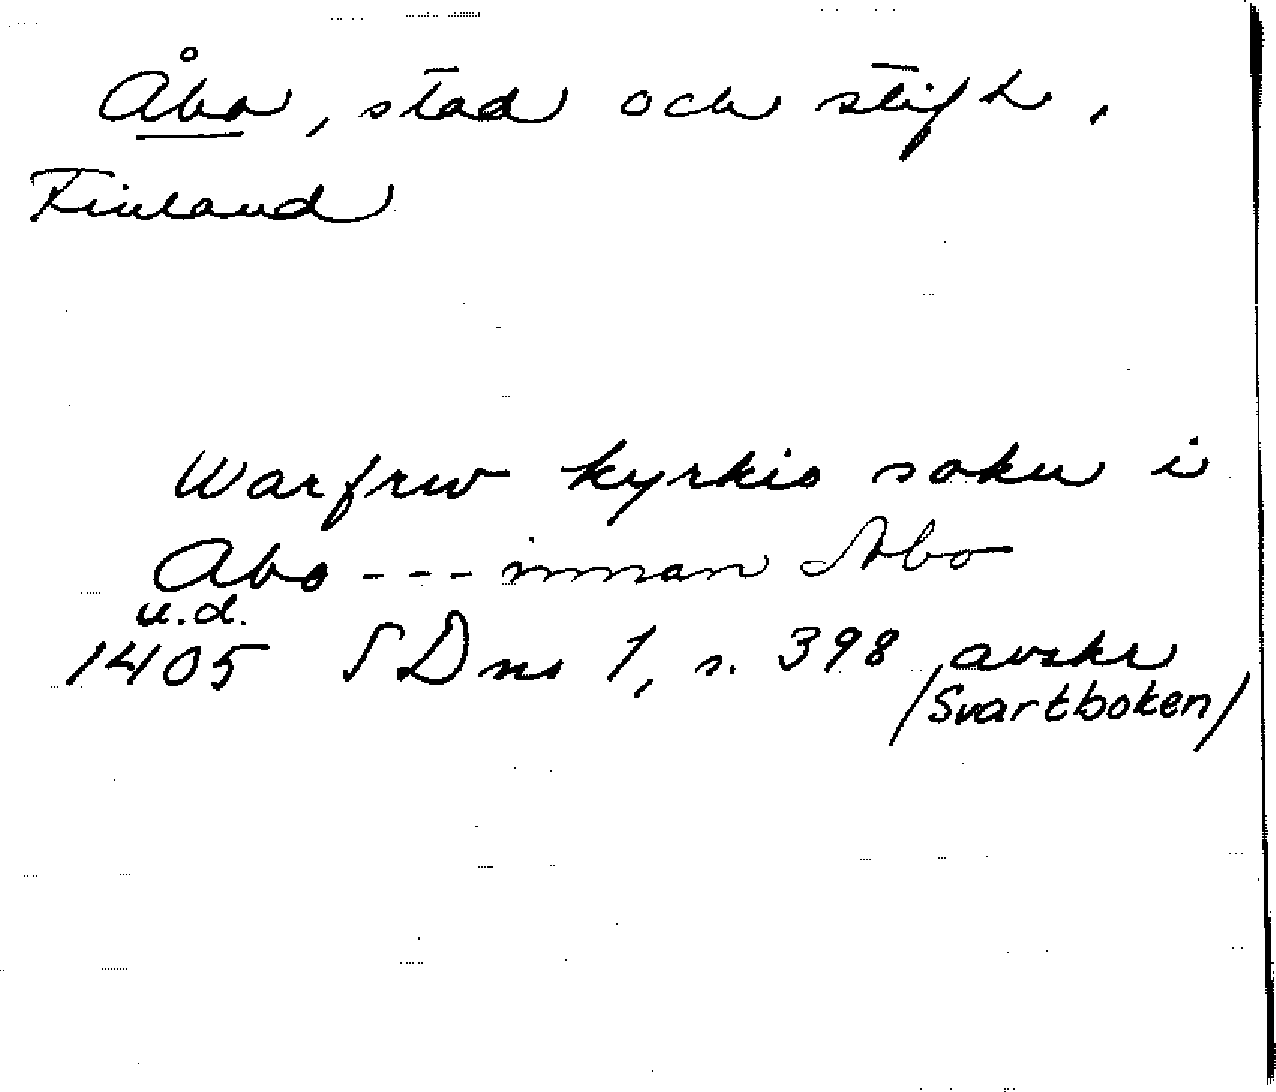 Åbo, stad och stift,
Finland
Warfrw kyrkio sokn i
Abo --- innan Abo
u.d.
1405 SDns 1, s. 398 avskr
/Svartboken/